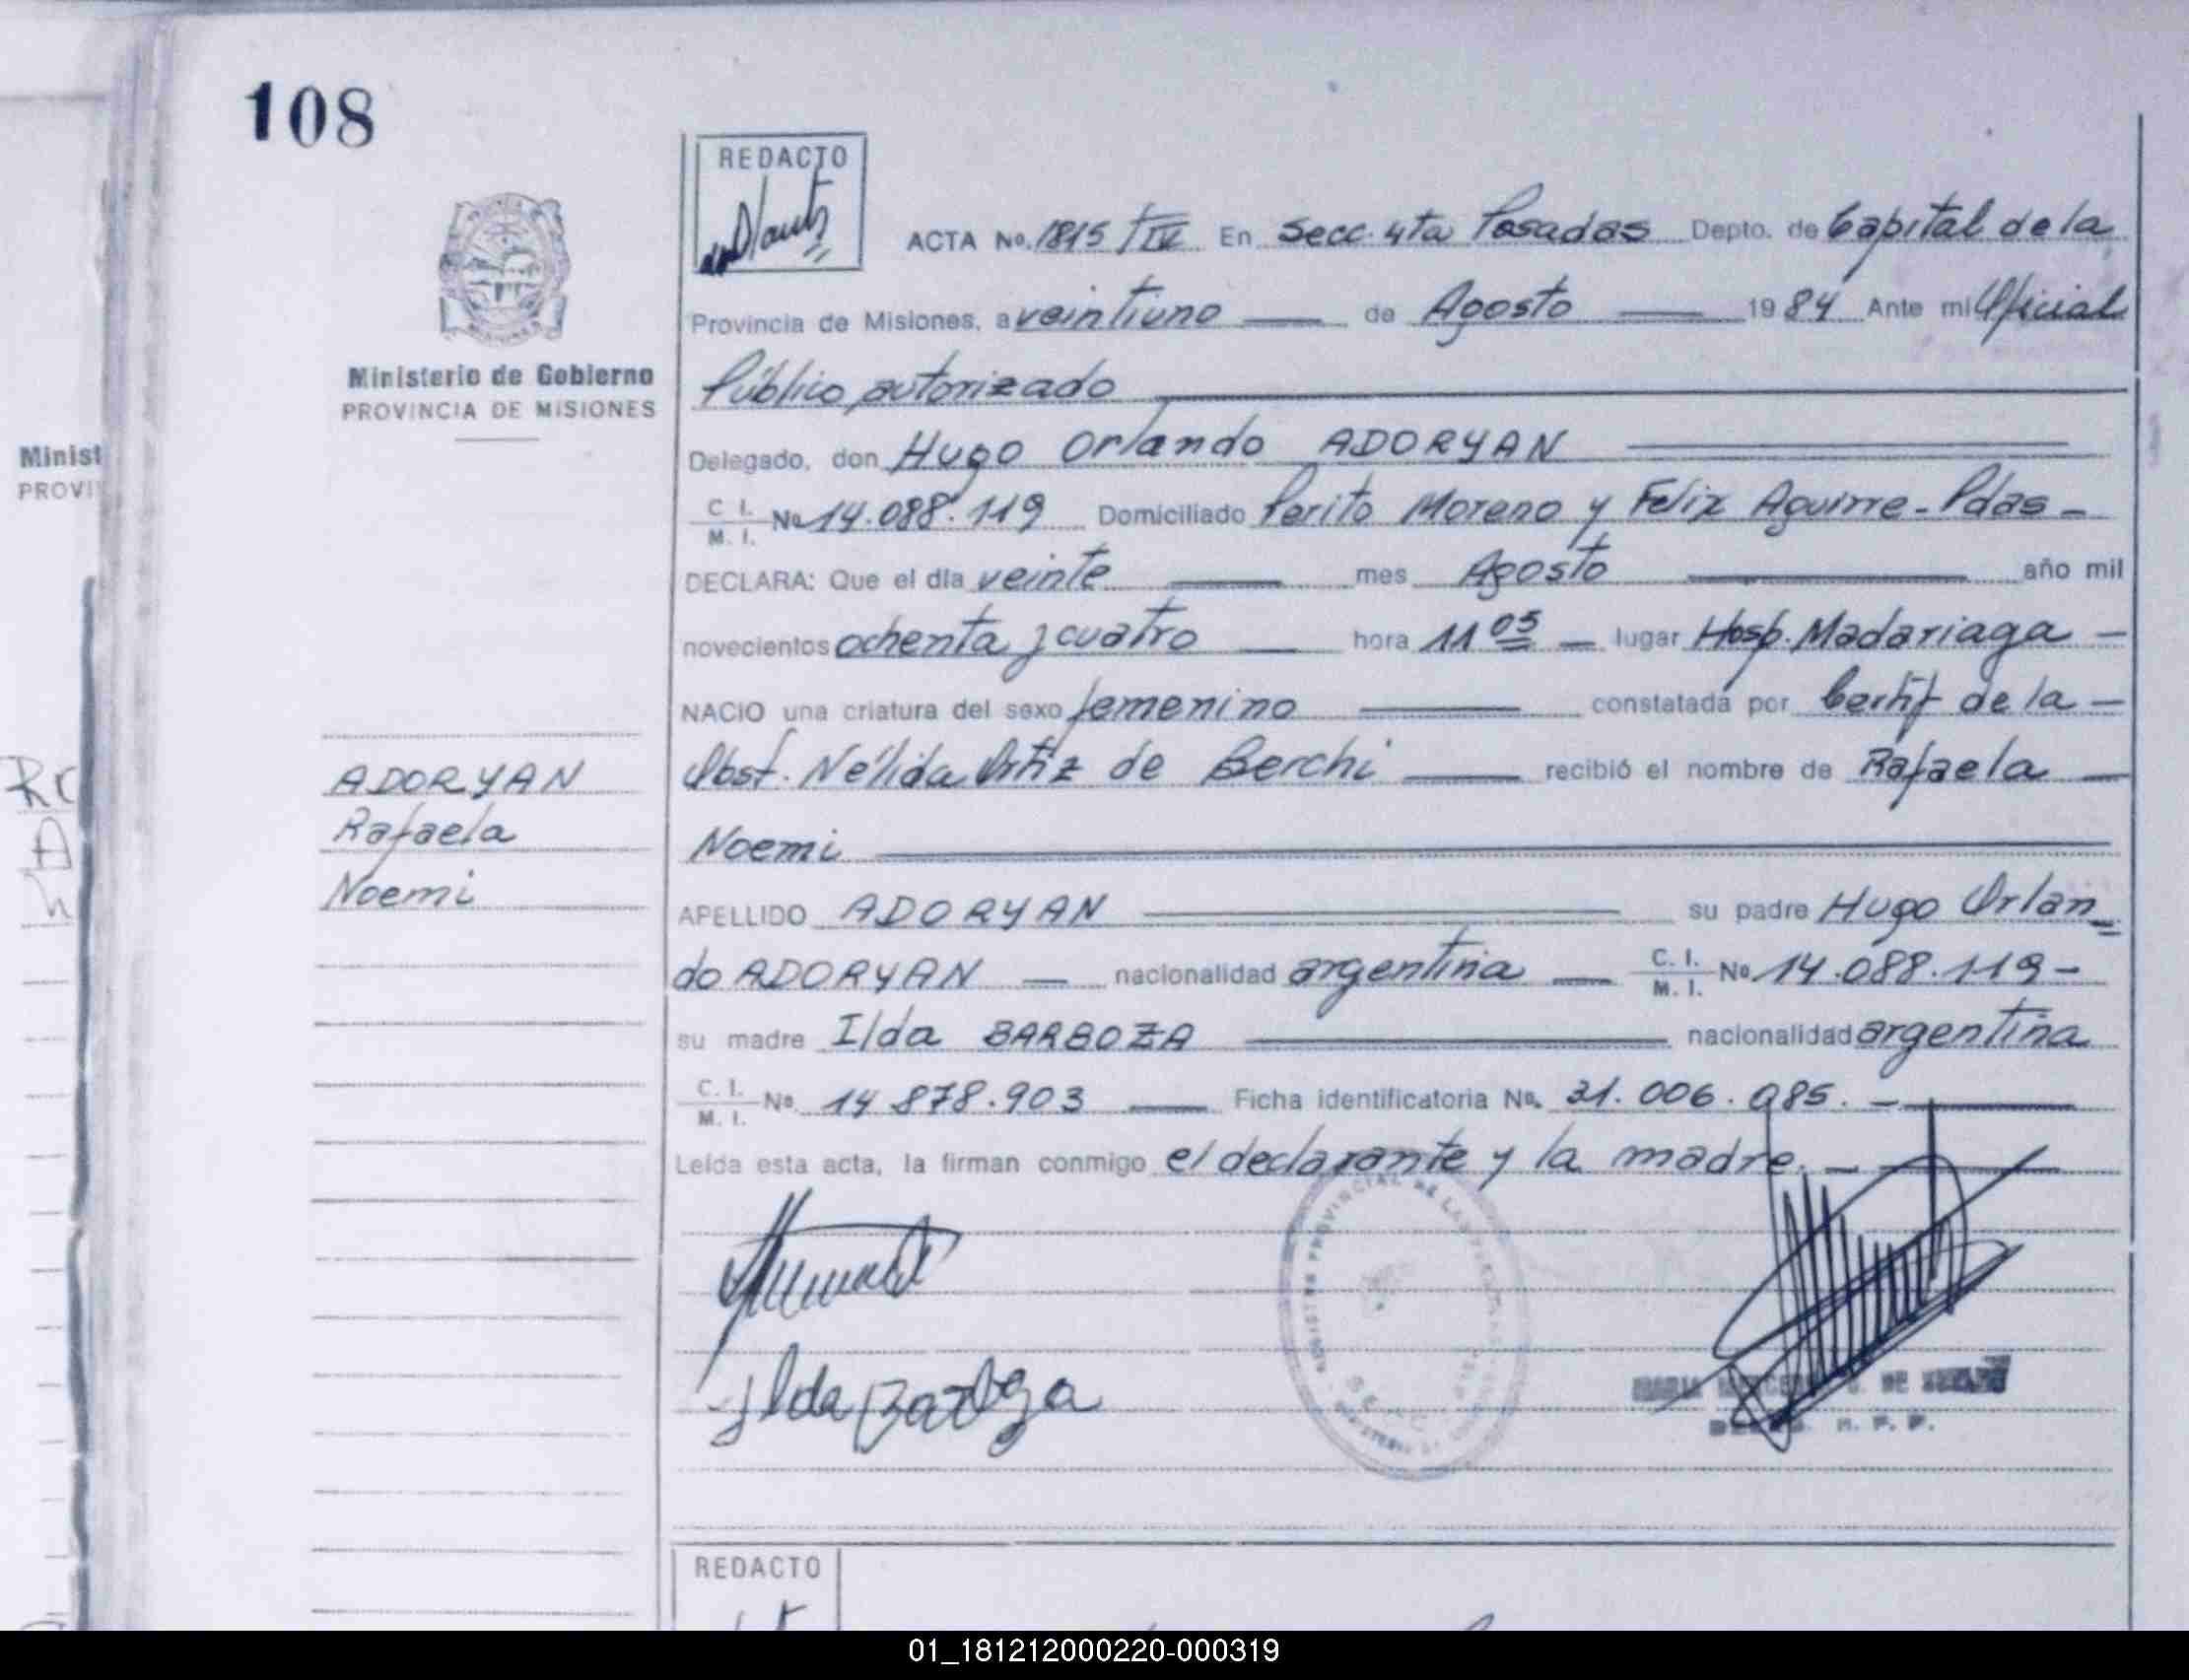 108
REDACTO
ACTA No. 1815/IV En Secc. 4ta Posadas Depto. de Capital de la
Provincia de Misiones, a veintiuno de Agosto 1984 Ante mi Oficial
Público autorizado
Ministerio de Gobierno
PROVINCIA DE MISIONES
Delegado, don Hugo Orlando ADORYAN
C. I. M. I. No 14.088.119 Domiciliado Perito Moreno y Felix Aguirre - Pdas -
DECLARA: Que el día veinte mes Agosto año mil
novecientos ochenta y cuatro hora 11 05 lugar Hosp. Madariaga -
NACIO una criatura del sexo femenino constatada por Certif de la -
Obst. Nélida Ortiz de Berchi recibió el nombre de Rafaela
Noemi
ADORYAN
Rafaela
Noemi
APELLIDO ADORYAN su padre Hugo Orlan=
do ADORYAN nacionalidad argentina C. I. M. I. No 14.088.119 -
su madre Ilda BARBOZA nacionalidad argentina
C. I. M. I. No. 14 878.903 Ficha identificatoria No. 31.006.085. -
Leída esta acta, la firman conmigo el declarante y la madre. -
Ilda Barboza
REGISTRO PROVINCIAL DE LAS
REDACTO
Minist
PROVI
01_181212000220-000319